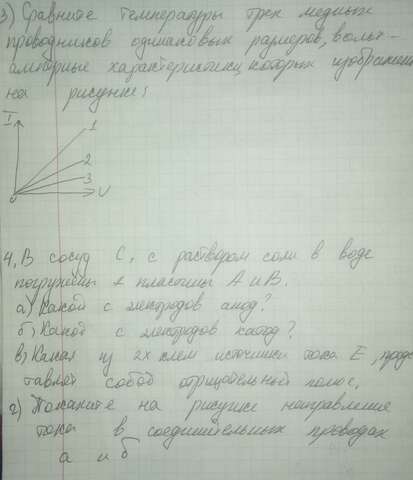 3) Сравните температуры трех медных
проводников одинаковых размеров, вольт-
амперные характеристики которых изображены
на рисунке:
I
1
2
3
0
U
4. В сосуд C, с раствором соли в воде
погружены 2 пластины A и B.
а) Какой с электродов анод?
б) Какой с электродов катод?
в) Какая из 2х клем источника тока E, предс
тавляет собой отрицательный полюс,
г) Покажите на рисунке направление
тока в соединительных проводах
а и б